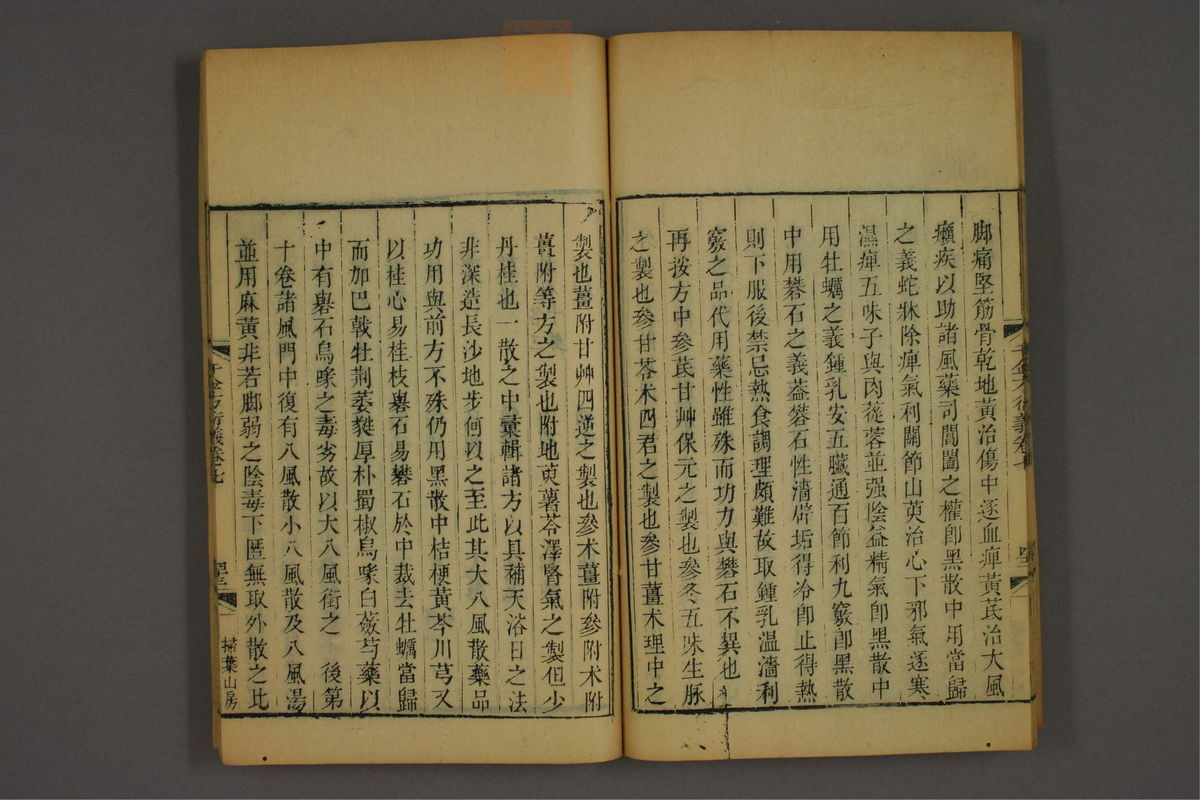 脚痛堅筋骨乾地黃治傷中逐血痺黃芪治大風
癩疾以助諸風藥司閭闔之權卽黑散中用當歸
之義蛇牀除痺氣利關節山萸治心下邪氣逐寒
濕痺五味子與肉蓯蓉並强陰益精氣卽黑散中
用牡蠣之義鍾乳安五臟通百節利九竅卽黑散
中用礬石之義葢礬石性濇辟垢得冷卽止得熱
則下服後禁忌熱食調理頗難故取鍾乳溫濇利
竅之品代用藥性雖殊而功力與礬石不異也
再按方中參芪甘艸保元之製也參冬五味生脉
之製也參甘苓术四君之製也參甘薑术理中之
製也薑附甘艸四逆之製也參术薑附參附术附
薑附等方之製也附地萸薯苓澤腎氣之製但少
丹桂也一散之中彙輯諸方以具補天浴日之法
非深造長沙地步何以之至此其大八風散藥品
功用與前方不殊仍用黑散中桔梗黃芩川芎又
以桂心易桂枝礜石易礬石於中裁去牡蠣當歸
而加巴戟牡荆萎蕤厚朴蜀椒烏喙白蘞芍藥以
中有礜石烏喙之毒劣故以大八風銜之　後第
十卷諸風門中復有八風散小八風散及八風湯
並用麻黃非若脚弱之陰毒下匿無取外散之比
千金方衍義卷七
掃葉山房